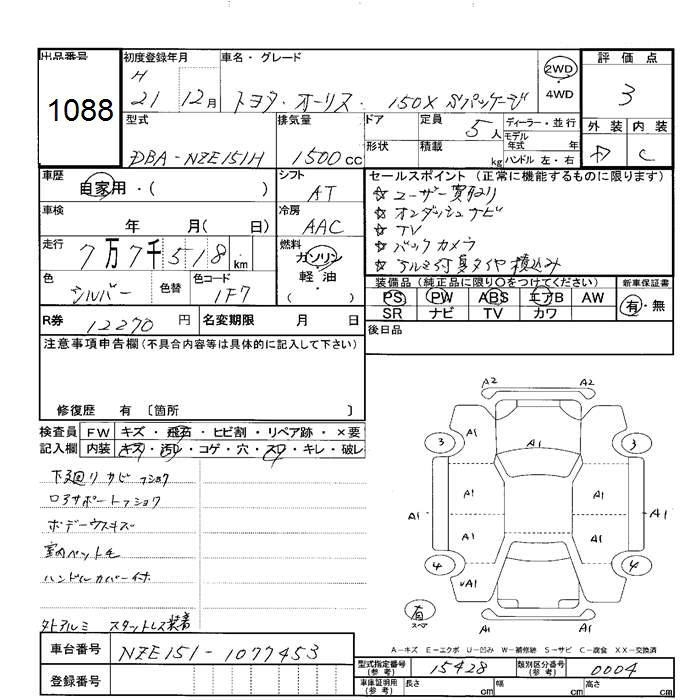 出品番号 初度登録年月 車名・グレード 2WD 評価点
1088 H 21 12月 トヨタ・オーリス・150X Sパッケージ ・4WD 3
型式 排気量 ドア 定員 5人 ディーラー・並行 外装 内装
DBA-NZE151H 1500cc 形状 積載 kg モデル年式 年 ハンドル 左・右 C
車歴 自家用・( ) シフト AT セールスポイント(正常に機能するものに限ります)
☆ユーザー買取り
車検 年 月( 日) 冷房 AAC ☆オンダッシュナビ
☆TV
走行 7万7千518km 燃料 ガソリン ☆バックカメラ
軽・油 ☆アルミ付夏タイヤ積込み
色 シルバー 色替 色コード 1F7 ・( ) 装備品(純正品に限り○をつけてください) 新車保証書
PS PW ABS エアB AW 有・無
SR ナビ TV カワ
R券 12270円 名変期限 月 日 後日品
注意事項申告欄(不具合内容等は具体的に記入して下さい)
修復歴 有 〔箇所 〕
検査員 FW キズ・飛石・ヒビ割・リペア跡・×要
記入欄 内装 キズ・汚レ・コゲ・穴・スレ・キレ・破レ
下廻リサビフショク
ロアサポートフショク
ボデーウスキズ
室内ペット毛
ハンドルカバー付
外アルミ スタットレス装着
A2 A2
3 A1 A1 3
A1 A1
A1 A1 A1 A1
4 A1 4
有 スペア A1 A1
A-キズ E-エクボ U-凹み W-補修跡 S-サビ C-腐食 XX-交換済
車台番号 NZE151-1077453 型式指定番号(参考) 15428 類別区分番号(参考) 0004
登録番号 車庫証明用(参考) 長さ cm 幅 cm 高さ cm